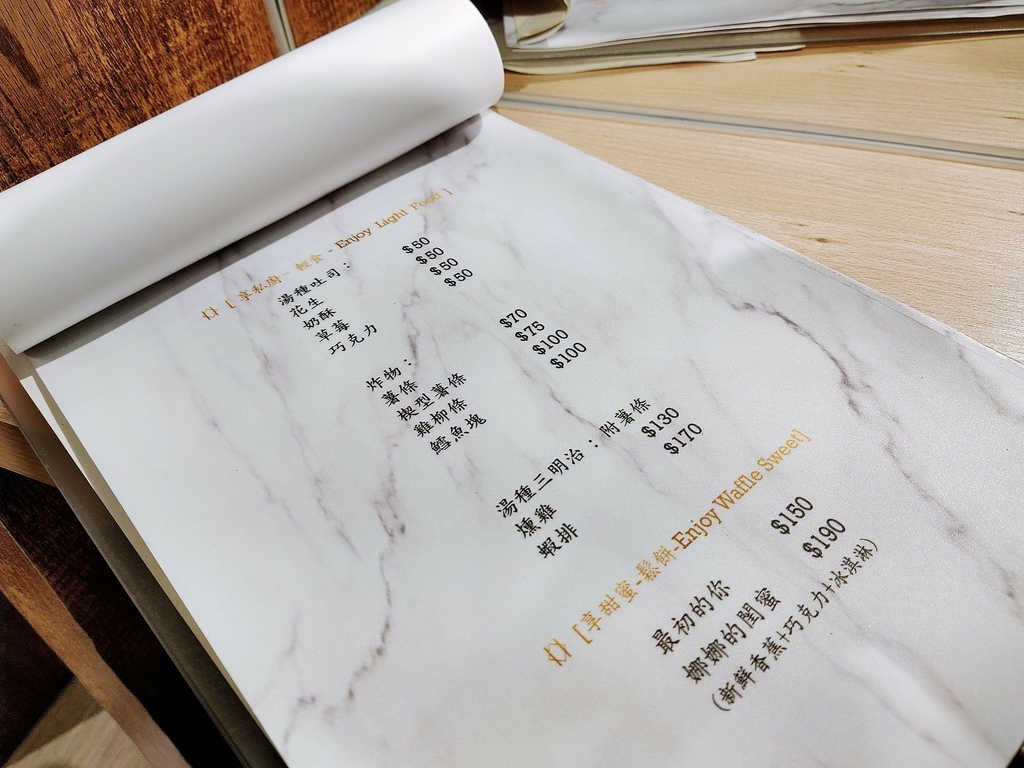 [ 享私廚 - 輕食 - Enjoy Light Food ]
湯種吐司：
花生 $50
奶酥 $50
草莓 $50
巧克力 $50
炸物：
薯條 $70
楔型薯條 $75
雞柳條 $100
鱈魚塊 $100
湯種三明治：附薯條
燻雞 $130
蝦排 $170
[享甜蜜-鬆餅-Enjoy Waffle Sweet]
最初的你 $150
娜娜的閨蜜 $190
(新鮮香蕉+巧克力+冰淇淋)